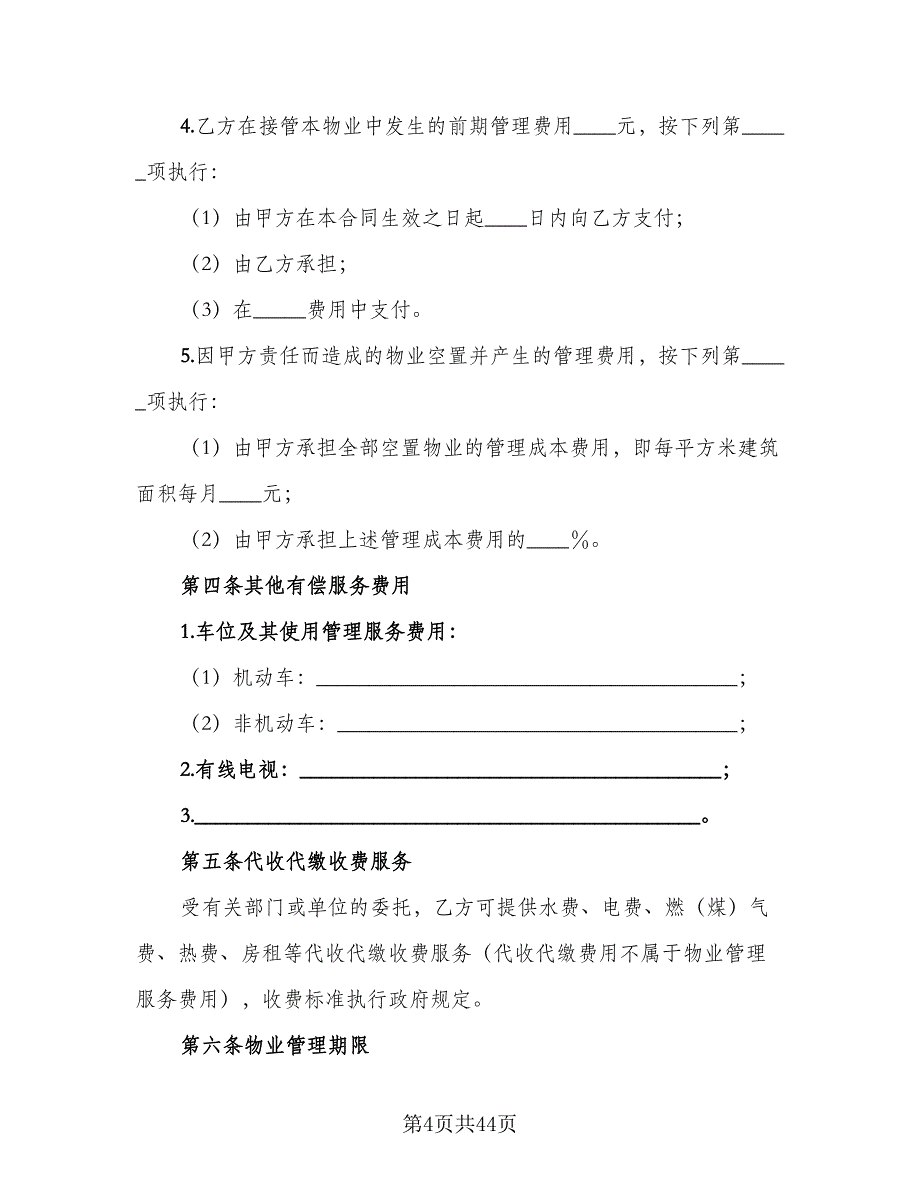 4.乙方在接管本物业中发生的前期管理费用____元，按下列第____
_项执行：
（1）由甲方在本合同生效之日起____日内向乙方支付；
（2）由乙方承担；
（3）在_____费用中支付。
5.因甲方责任而造成的物业空置并产生的管理费用，按下列第____
_项执行：
（1）由甲方承担全部空置物业的管理成本费用，即每平方米建筑
面积每月____元；
（2）由甲方承担上述管理成本费用的____％。
第四条其他有偿服务费用
1.车位及其使用管理服务费用：
（1）机动车：________________________________________；
（2）非机动车：______________________________________；
2.有线电视：________________________________________；
3.________________________________________________。
第五条代收代缴收费服务
受有关部门或单位的委托，乙方可提供水费、电费、燃（煤）气
费、热费、房租等代收代缴收费服务（代收代缴费用不属于物业管理
服务费用），收费标准执行政府规定。
第六条物业管理期限
第4页共44页